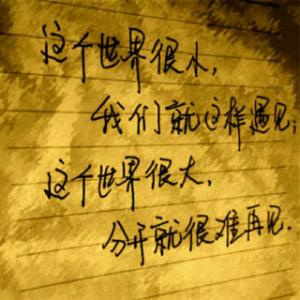 这个世界很小,
我们就这样遇见;
这个世界很大,
分开就很难再见.